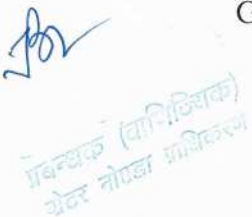 प्रबन्धक (वाणिज्यिक)
ग्रेटर नोएडा प्राधिकरण